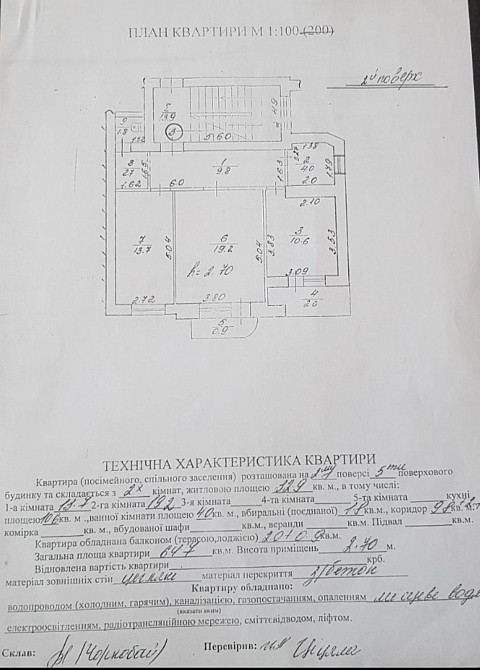 ПЛАН КВАРТИРИ М 1:100 (200)
2й поверх
5
19.9
5.60
4.9
9
1.8
1.12
8
2.7
1.65
1.62
6.0
1
9.8
1.63
1.38
2
4.0
2.0
1.79
2.10
7
13.7
5.04
6
19.2
5.04
3.83
3
10.6
3.53
h=2.70
2.72
3.80
3.09
4
2.0
5
0.9
ТЕХНІЧНА ХАРАКТЕРИСТИКА КВАРТИРИ
Квартира (посімейного, спільного заселення) розташована на 2му поверсі 5ти поверхового
будинку та складається з 2х кімнат, житловою площею 32.9 кв. м., в тому числі:
1-а кімната 13.7 2-га кімната 19.2 3-я кімната 4-та кімната 5-та кімната кухні
площею 10.6 кв. м., ванної кімнати площею 4.0 кв. м., вбиральні (поєднаної) 1.8 кв. м., коридор 9.8
комірка кв. м., вбудованої шафи кв.м., веранди кв. м. Підвал кв.м.
Квартира обладнана балконом (терасою,лоджією) 2.0 0.9 кв.м.
Загальна площа квартири 64.7 кв.м. Висота приміщень 2.70 м.
Відновлена вартість квартири крб.
матеріал зовнішніх стін цегляні матеріал перекриття з/бетон
Квартиру обладнано:
водопроводом (холодним, гарячим), каналізацією, газопостачанням, опаленням
(вказати яким)
електроосвітленням, радіотрансляційною мережею, сміттєвідводом, ліфтом.
Склав: (Чернобай) Перевірив: